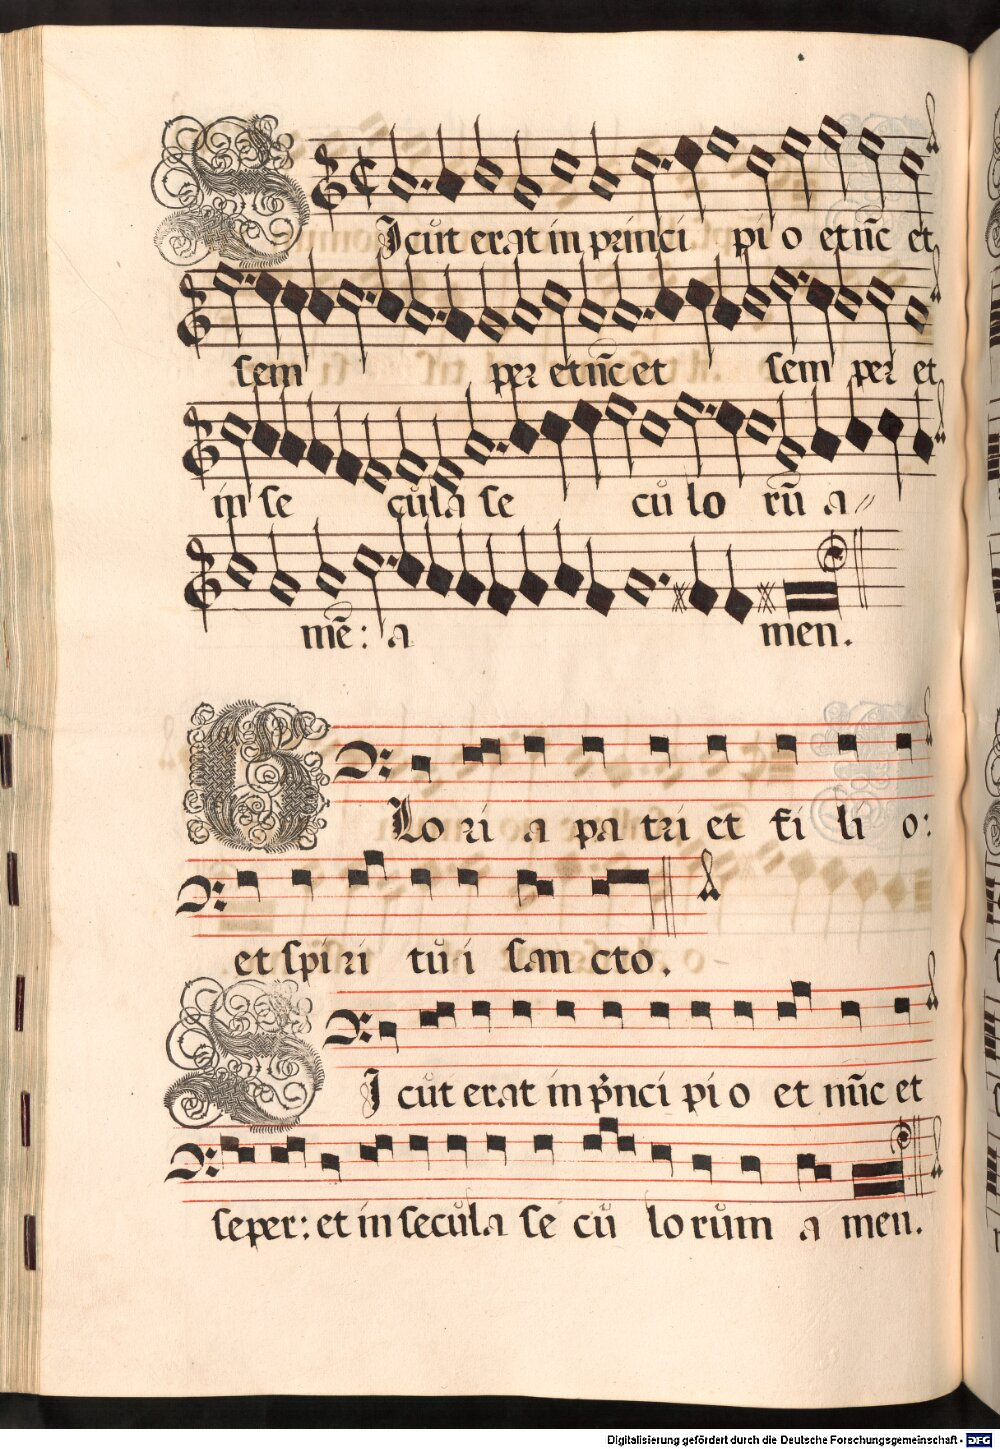 SIcut erat in princi pi o et nūc et
sem per et nūc et sem per et
in se cula se cu lo rū a
mē: a men.
GLo ri a pa tri et fi li o:
et spi ri tu i san cto.
SI cut erat in pnci pi o et nūc et
seper: et in secula se cu lo rum a men.
Digitalisierung gefördert durch die Deutsche Forschungsgemeinschaft - DFG